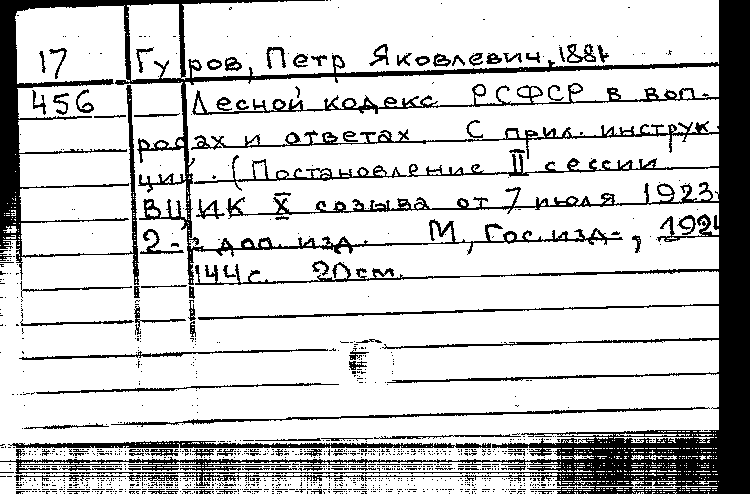 17 Гуров, Петр Яковлевич, 1881
456 Лесной кодекс РСФСР в воп-
росах и ответах. С прил. инструк-
ций. (Постановление II сессии
ВЦИК X созыва от 7 июля 1923
2-е доп. изд. М., Гос. изд-,
144 с. 20 см.